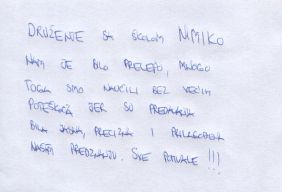 DRUŽENJE SA ŠKOLOM NIMIKO
NAM JE BILO PRELEPO, MNOGO
TOGA SMO NAUČILI BEZ VEĆIH
POTEŠKOĆA JER SU PREDAVANJA
BILA JASNA, PRECIZNA I PRILAGOĐENA
NAŠEM PREDZNANJU. SVE POHVALE!!!